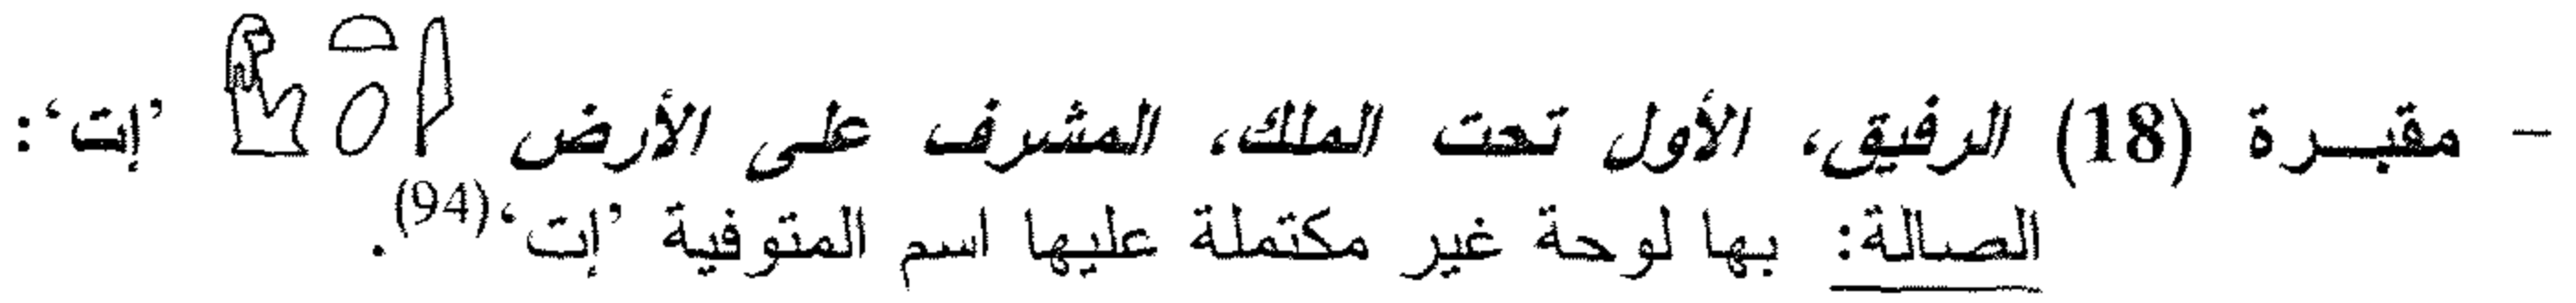 – مقبرة (18) الرفيق، الأول تحت الملك، المشرف على الأرض 𓇋𓏏𓆇𓁐 ’إت‘:
الصالة: بها لوحة غير مكتملة عليها اسم المتوفية ’إت‘(94).